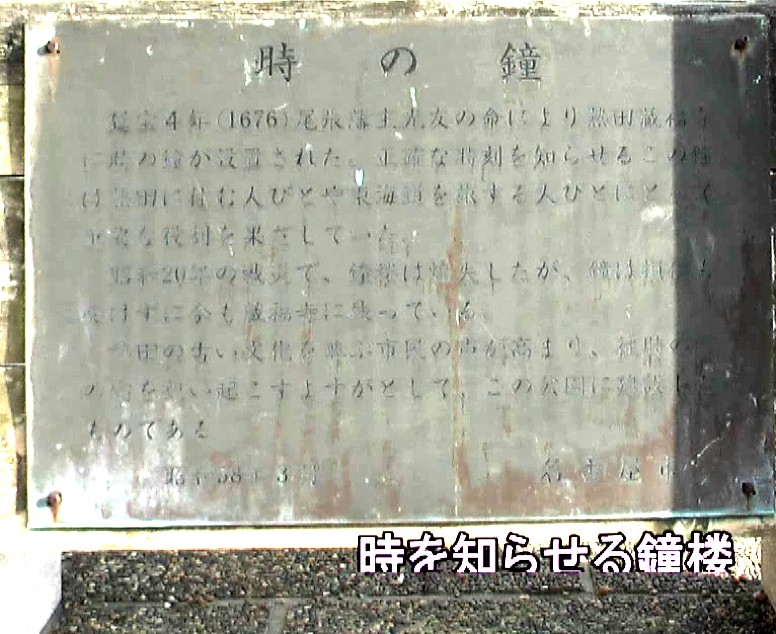 時の鐘
延宝4年(1676)尾張藩主光友の命により熱田蔵福寺
に時の鐘が設置された。正確な時刻を知らせるこの鐘
は熱田に住む人びとや東海道を旅する人びとにとって
重要な役割を果たしていた。
昭和20年の戦災で、鐘楼は焼失したが、鐘は損傷も
受けずに今も蔵福寺に残っている。
熱田の古い文化を尊ぶ市民の声が高まり、往時の
の 起こすよすがとして、この公園に建設した
ものである
昭和58年3月 名古屋市
時を知らせる鐘楼